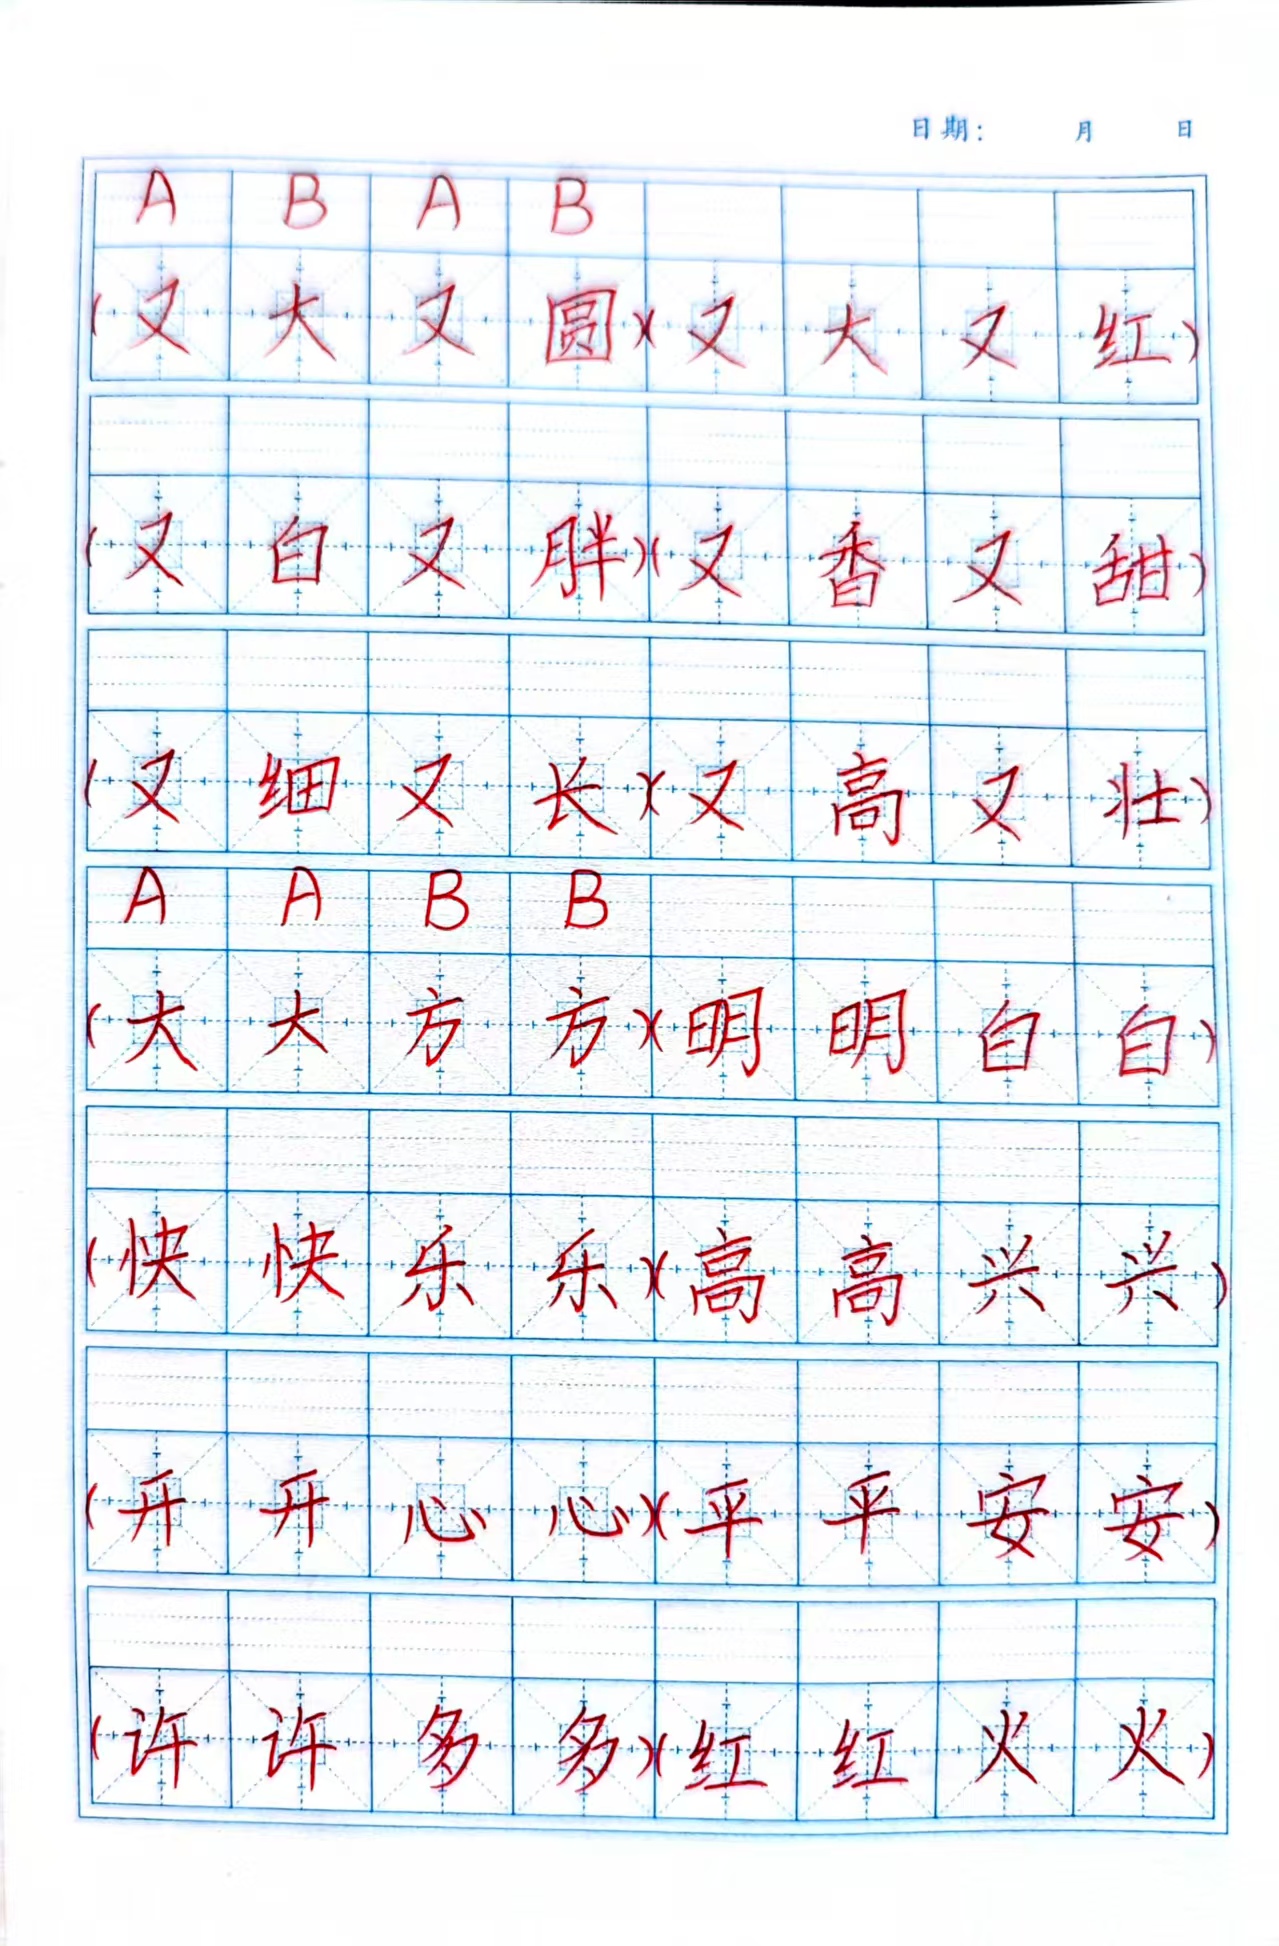 日期： 月 日
A B A B
(又大又圆)(又大又红)
(又白又胖)(又香又甜)
(又细又长)(又高又壮)
A A B B
(大大方方)(明明白白)
(快快乐乐)(高高兴兴)
(开开心心)(平平安安)
(许许多多)(红红火火)